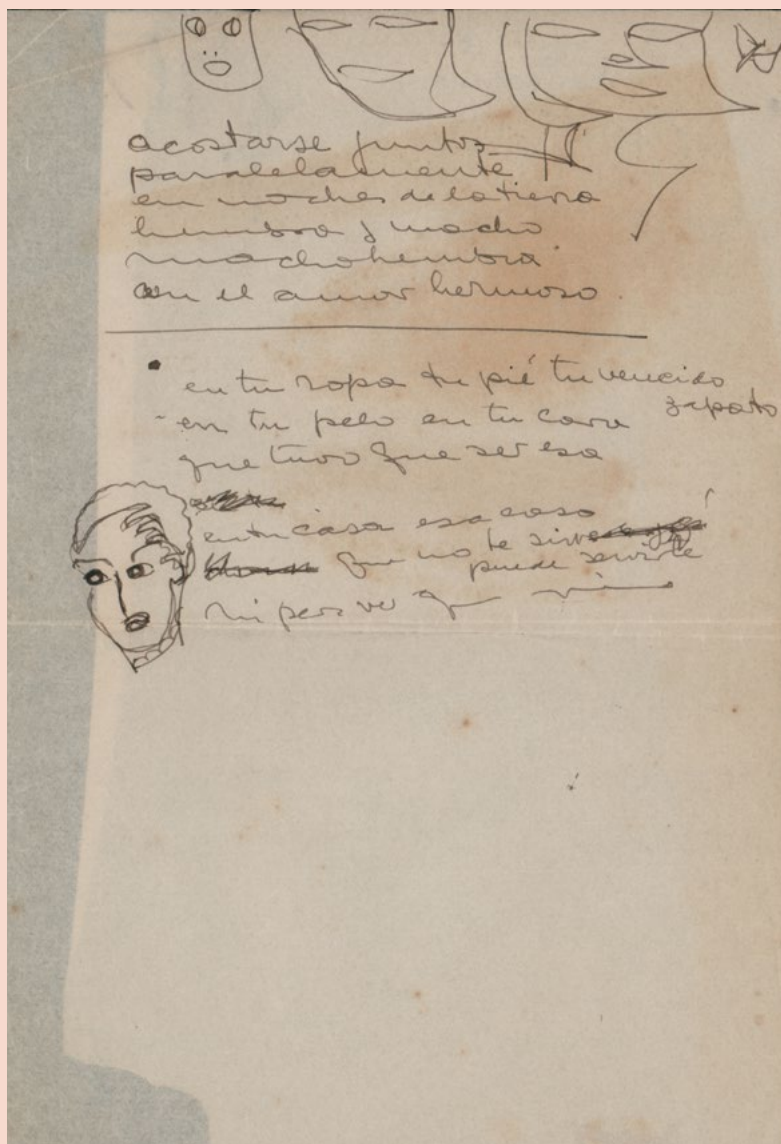 acostarse juntos
paralelamente
en noches de la tierra
hembra y macho
machohembra
en el amor hermoso.
en tu ropa tu pié tu vencido
zapato
en tu pelo en tu cara
que tuvo que ser esa
en tu casa esa cosa
que no te sirve
puede servirte
ni para ver que